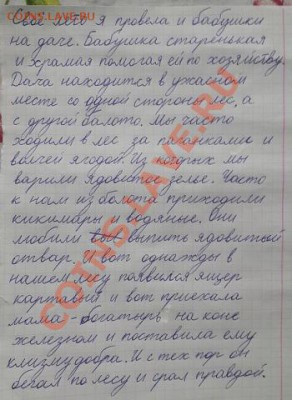 Своё лето я провела и бабушки
на даче. Бабушка старенькая
и храмая помогая ей по хозяйству.
Дача находится в ужасном
месте со одной стороны лес, а
с другой балото. Мы часто
ходили в лес за паганками и
волчей ягодой. Из которых мы
варили ядовитое зелье. Часто
к нам из болота приходили
кикимары и водяные. Они
любили выпить ядовитый
отвар. И вот однажды в
нашем лесу появился ящер
картавый и вот приехала
мама - богатырь на коне
железном и поставила ему
клизму добра. И с тех пор он
бегал по лесу и срал правдой.
COINS.LAVE.RU
COINS.LAVE.RU